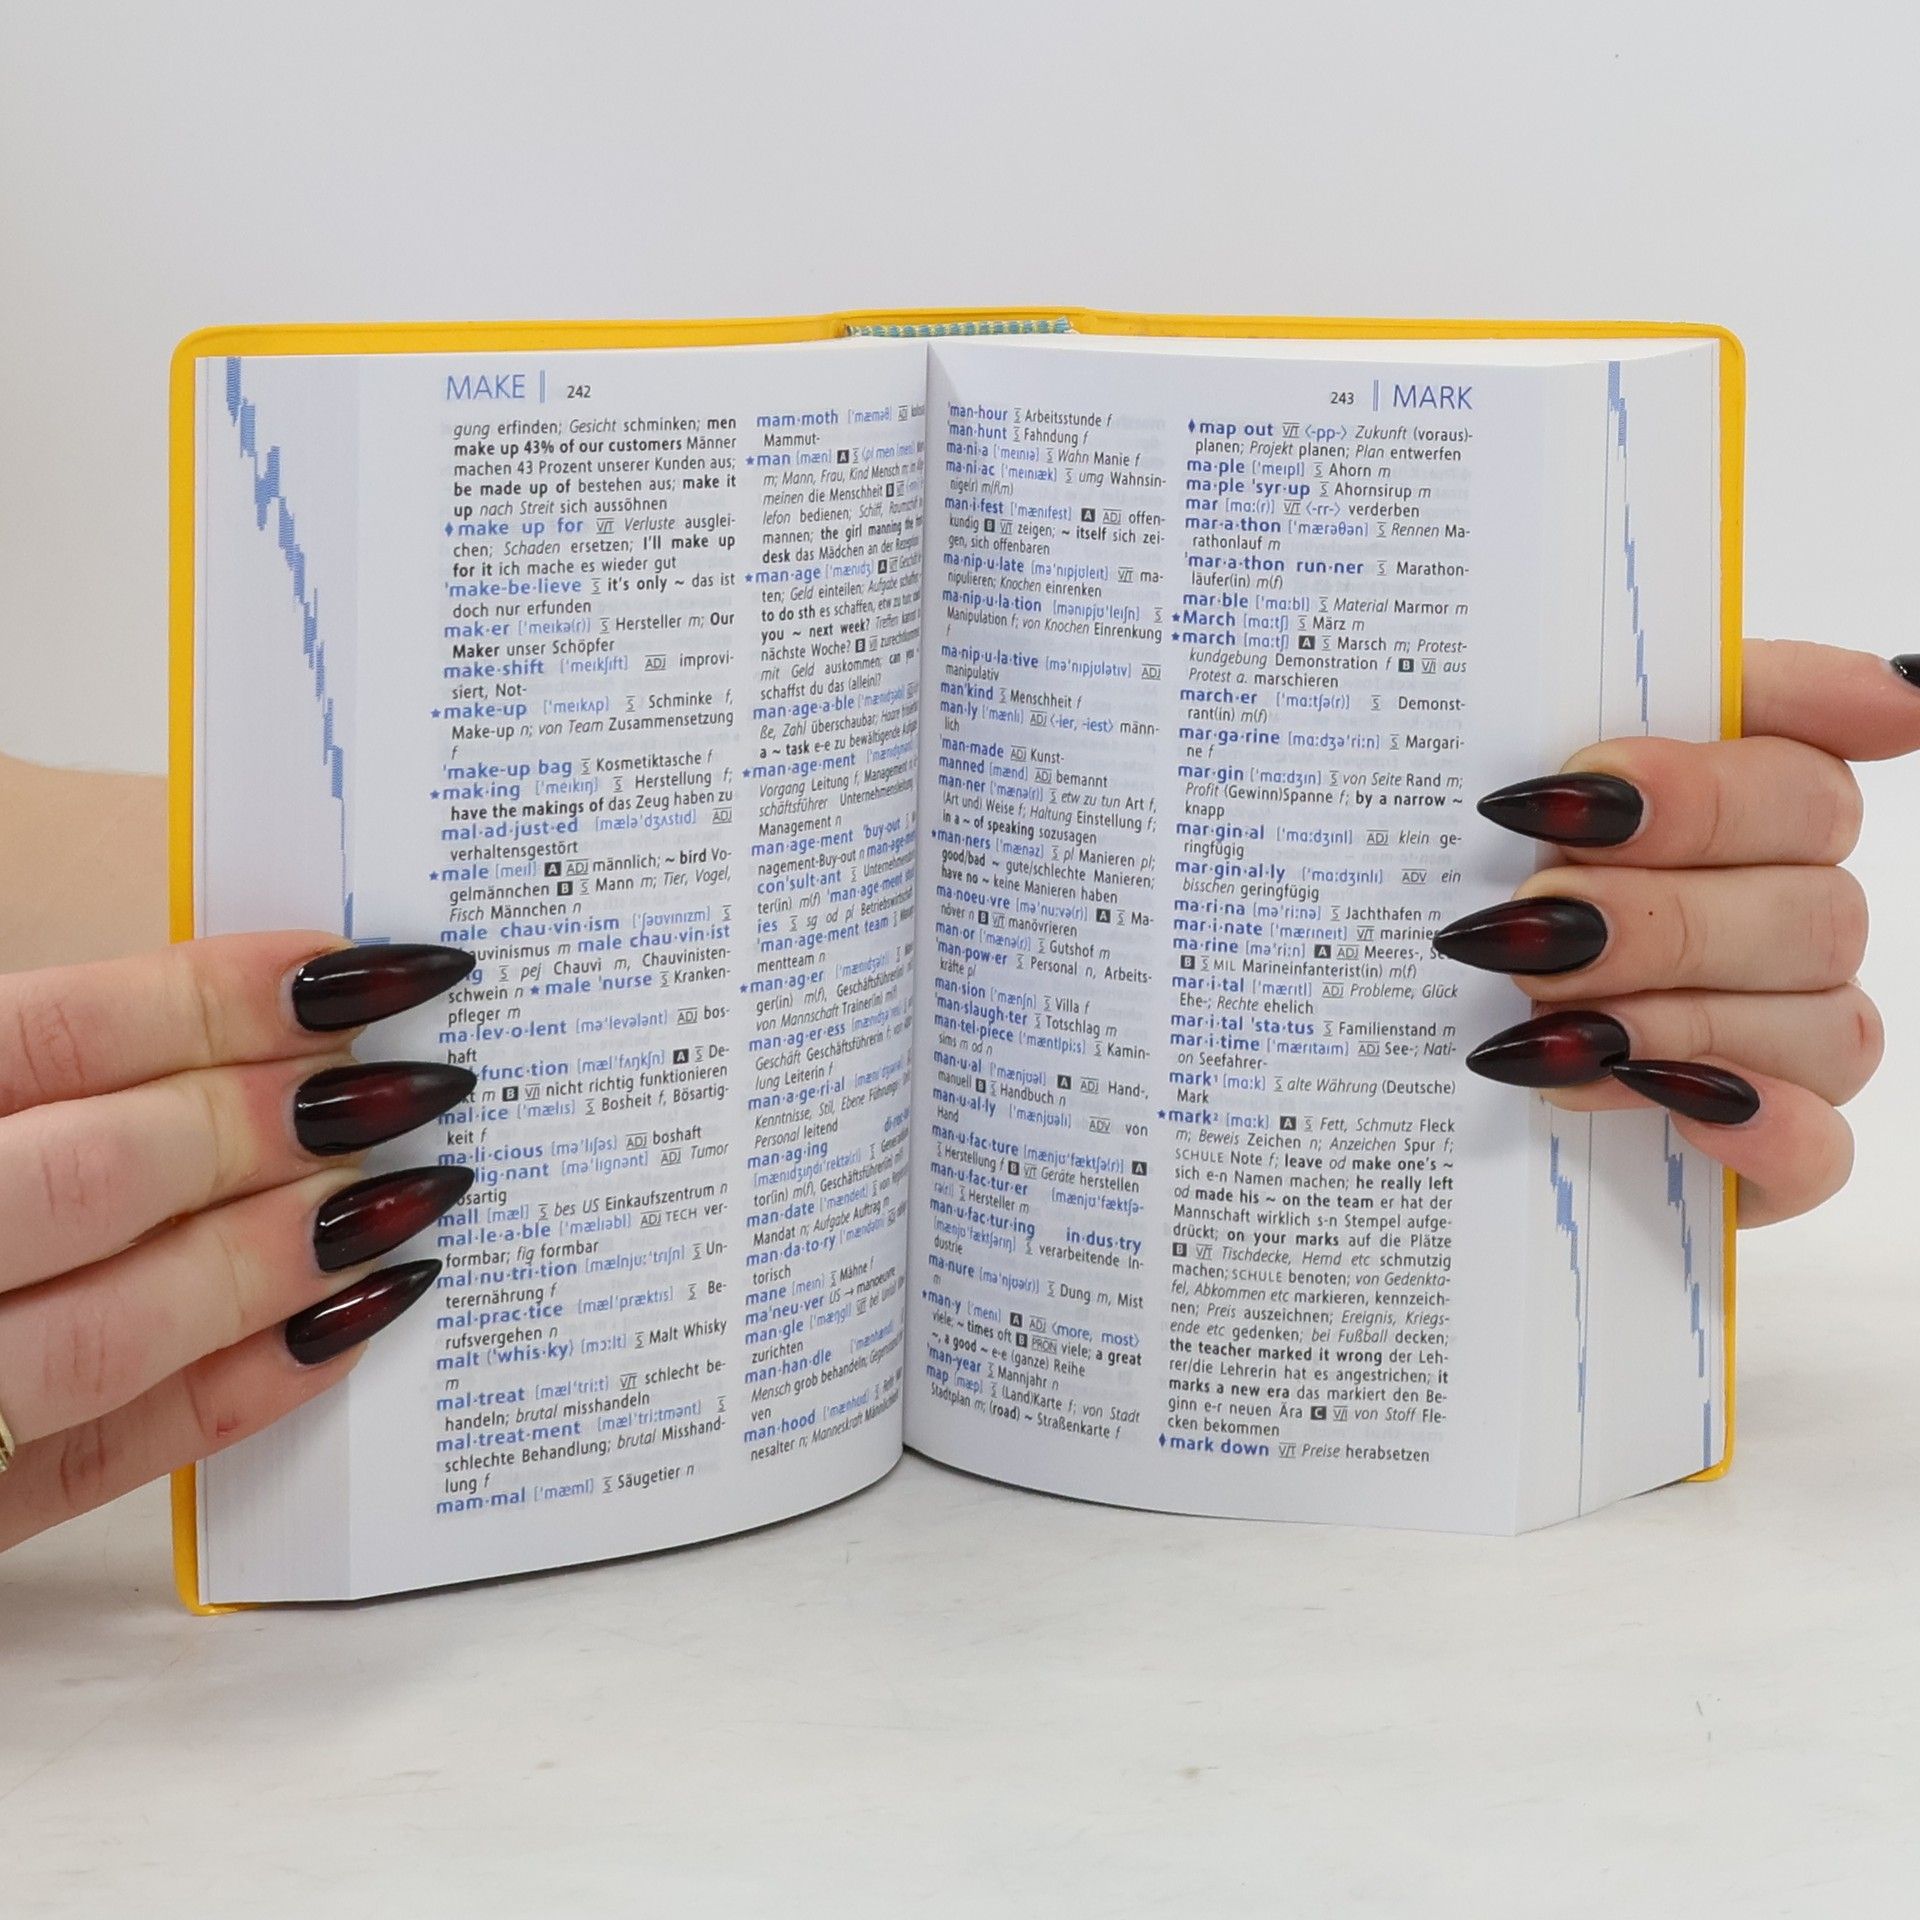 MAKE 242
gung erfinden; Gesicht schminken; men
make up 43% of our customers Männer
machen 43 Prozent unserer Kunden aus;
be made up of bestehen aus; make it
up nach Streit sich aussöhnen
♦make up for V/T Verluste ausglei-
chen; Schaden ersetzen; I'll make up
for it ich mache es wieder gut
'make-be·lieve S it's only ~ das ist
doch nur erfunden
mak·er ['meikə(r)] S Hersteller m; Our
Maker unser Schöpfer
make·shift ['meɪkʃɪft] ADJ improvi-
siert, Not-
★make-up ['meɪkʌp] S Schminke f,
Make-up n; von Team Zusammensetzung
f
'make-up bag S Kosmetiktasche f
★mak·ing ['meɪkɪŋ] S Herstellung f;
have the makings of das Zeug haben zu
mal·ad·just·ed [mælə'dʒʌstɪd] ADJ
verhaltensgestört
★male [meɪl] A ADJ männlich; ~ bird Vo-
gelmännchen B S Mann m; Tier, Vogel,
Fisch Männchen n
male chau·vin·ism ['ʃəʊvɪnɪzm] S
auvinismus m male chau·vin·ist
S pej Chauvi m, Chauvinisten-
schwein n ★male 'nurse S Kranken-
pfleger m
ma·lev·o·lent [mə'levələnt] ADJ bos-
haft
func·tion [mæl'fʌŋkʃn] A S De-
m B V/I nicht richtig funktionieren
mal·ice ['mælɪs] S Bosheit f, Bösartig-
keit f
ma·li·cious [mə'lɪʃəs] ADJ boshaft
lig·nant [mə'lɪgnənt] ADJ Tumor
ösartig
mall [mæl] S bes US Einkaufszentrum n
mal·le·a·ble ['mælɪəbl] ADJ TECH ver-
formbar; fig formbar
mal·nu·tri·tion [mælnju:'trɪʃn] S Un-
terernährung f
mal·prac·tice [mæl'præktɪs] S Be-
rufsvergehen n
malt ('whis·ky) [mɔ:lt] S Malt Whisky
m
mal·treat [mæl'tri:t] V/T schlecht be-
handeln; brutal misshandeln
mal·treat·ment [mæl'tri:tmənt] S
schlechte Behandlung; brutal Misshand-
lung f
mam·mal ['mæml] S Säugetier n
mam·moth ['mæməθ] ADJ
Mammut-
★man [mæn] A S
m; Mann, Frau, Kind Mensch m;
meinen die Menschheit B V/T
lefon bedienen; Schiff,
mannen; the girl manning the
desk das Mädchen an der Rezeption
★man·age ['mænɪdʒ] A V/T Geschäft
ten; Geld einteilen; Aufgabe
to do sth es schaffen, etw zu tun;
you ~ next week? Treffen
nächste Woche? B V/I
mit Geld auskommen; can you
schaffst du das (allein)?
man·age·a·ble ['mænɪdʒəbl]
ße, Zahl überschaubar;
a ~ task e-e zu bewältigende
★man·age·ment ['mænɪdʒmənt]
Vorgang Leitung f, Management
schäftsführer Unternehmensleitung
Management n
man·age·ment 'buy-out S
nagement-Buy-out n man·age·ment
con'sult·ant S
ter(in) m(f) 'man·age·ment
ies S sg od pl Betriebswirtschaft
'man·age·ment team S
mentteam n
★man·ag·er ['mænɪdʒə(r)]
ger(in) m(f), Geschäftsführer(in)
von Mannschaft Trainer(in) m(f)
man·ag·er·ess
Geschäft Geschäftsführerin f;
lung Leiterin f
man·a·ge·ri·al
Kenntnisse, Stil, Ebene Führungs-
Personal leitend
man·ag·ing di·rec
[mænɪdʒɪŋdɪ'rektə(r)] S
tor(in) m(f), Geschäftsführer(in)
man·date ['mændeɪt] S
Mandat n; Aufgabe Auftrag m
man·da·to·ry
torisch
mane [meɪn] S Mähne f
ma'neu·ver US → manoeuvre
man·gle ['mæŋgl] V/T
zurichten
man·han·dle
Mensch grob behandeln;
ven
man·hood ['mænhʊd] S
nesalter n; Manneskraft
243 MARK
'man-hour S Arbeitsstunde f
'man·hunt S Fahndung f
ma·ni·a ['meɪnɪə] S Wahn Manie f
ma·ni·ac ['meɪnɪæk] S umg Wahnsin-
nige(r) m/f(m)
man·i·fest ['mænɪfest] A ADJ offen-
kundig B V/T zeigen; ~ itself sich zei-
gen, sich offenbaren
ma·nip·u·late [mə'nɪpjʊleɪt] V/T ma-
nipulieren; Knochen einrenken
ma·nip·u·la·tion [mənɪpjʊ'leɪʃn] S
Manipulation f; von Knochen Einrenkung
f
ma·nip·u·la·tive [mə'nɪpjʊlətɪv] ADJ
manipulativ
man'kind S Menschheit f
man·ly ['mænlɪ] ADJ <-ier, -iest> männ-
lich
'man-made ADJ Kunst-
manned [mænd] ADJ bemannt
man·ner ['mænə(r)] S etw zu tun Art f,
(Art und) Weise f; Haltung Einstellung f;
in a ~ of speaking sozusagen
★man·ners ['mænəz] S pl Manieren pl;
good/bad ~ gute/schlechte Manieren;
have no ~ keine Manieren haben
ma·noeu·vre [mə'nu:və(r)] A S Ma-
növer n B V/T manövrieren
man·or ['mænə(r)] S Gutshof m
'man·pow·er S Personal n, Arbeits-
kräfte pl
man·sion ['mænʃn] S Villa f
'man·slaugh·ter S Totschlag m
man·tel·piece ['mæntlpi:s] S Kamin-
sims m od n
man·u·al ['mænjʊəl] A ADJ Hand-,
manuell B S Handbuch n
man·u·al·ly ['mænjʊəlɪ] ADV von
Hand
man·u·fac·ture [mænjʊ'fæktʃə(r)] A
S Herstellung f B V/T Geräte herstellen
man·u·fac·tur·er [mænjʊ'fæktʃə-
rə(r)] S Hersteller m
man·u·fac·tur·ing in·dus·try
[mænjʊ'fæktʃərɪŋ] S verarbeitende In-
dustrie
ma·nure [mə'njʊə(r)] S Dung m, Mist
m
★man·y ['menɪ] A ADJ <more, most>
viele; ~ times oft B PRON viele; a great
~, a good ~ e-e (ganze) Reihe
'man-year S Mannjahr n
map [mæp] S (Land)Karte f; von Stadt
Stadtplan m; (road) ~ Straßenkarte f
♦map out V/T <-pp-> Zukunft (voraus)-
planen; Projekt planen; Plan entwerfen
ma·ple ['meɪpl] S Ahorn m
ma·ple 'syr·up S Ahornsirup m
mar [mɑ:(r)] V/T <-rr-> verderben
mar·a·thon ['mærəθən] S Rennen Ma-
rathonlauf m
'mar·a·thon run·ner S Marathon-
läufer(in) m(f)
mar·ble ['mɑ:bl] S Material Marmor m
★March [mɑ:tʃ] S März m
★march [mɑ:tʃ] A S Marsch m; Protest-
kundgebung Demonstration f B V/I aus
Protest a. marschieren
march·er ['mɑ:tʃə(r)] S Demonst-
rant(in) m(f)
mar·ga·rine [mɑ:dʒə'ri:n] S Margari-
ne f
mar·gin ['mɑ:dʒɪn] S von Seite Rand m;
Profit (Gewinn)Spanne f; by a narrow ~
knapp
mar·gin·al ['mɑ:dʒɪnl] ADJ klein ge-
ringfügig
mar·gin·al·ly ['mɑ:dʒɪnlɪ] ADV ein
bisschen geringfügig
ma·ri·na [mə'ri:nə] S Jachthafen m
mar·i·nate ['mærɪneɪt] V/T marinier
ma·rine [mə'ri:n] A ADJ Meeres-,
B S MIL Marineinfanterist(in) m(f)
mar·i·tal ['mærɪtl] ADJ Probleme, Glück
Ehe-; Rechte ehelich
mar·i·tal 'sta·tus S Familienstand m
mar·i·time ['mærɪtaɪm] ADJ See-; Nati-
on Seefahrer-
mark¹ [mɑ:k] S alte Währung (Deutsche)
Mark
★mark² [mɑ:k] A S Fett, Schmutz Fleck
m; Beweis Zeichen n; Anzeichen Spur f;
SCHULE Note f; leave od make one's ~
sich e-n Namen machen; he really left
od made his ~ on the team er hat der
Mannschaft wirklich s-n Stempel aufge-
drückt; on your marks auf die Plätze
B V/T Tischdecke, Hemd etc schmutzig
machen; SCHULE benoten; von Gedenkta-
fel, Abkommen etc markieren, kennzeich-
nen; Preis auszeichnen; Ereignis, Kriegs-
ende etc gedenken; bei Fußball decken;
the teacher marked it wrong der Leh-
rer/die Lehrerin hat es angestrichen; it
marks a new era das markiert den Be-
ginn e-r neuen Ära C V/I von Stoff Fle-
cken bekommen
♦mark down V/T Preise herabsetzen